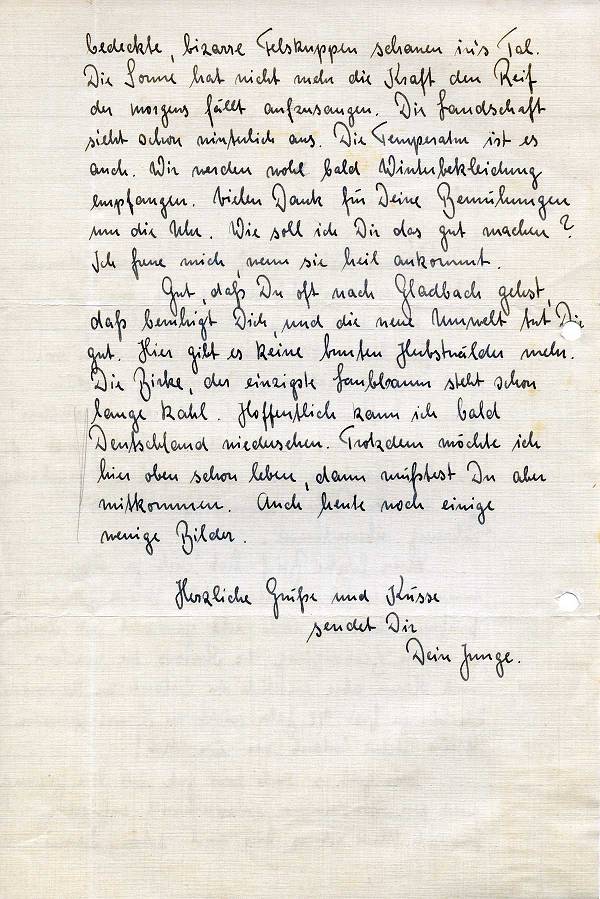 bedeckte, bizarre Felskuppen schauen in's Tal.
Die Sonne hat nicht mehr die Kraft den Reif
der morgens fällt aufzusaugen. Die Landschaft
sieht schon winterlich aus. Die Temperatur ist es
auch. Wir werden wohl bald Winterbekleidung
empfangen. Vielen Dank für Deine Bemühungen
um die Uhr. Wie soll ich Dir das gut machen?
Ich freue mich, wenn sie heil ankommt.
Gut, daß Du oft nach Gladbach gehst,
daß beruhigt Dich, und die neue Umwelt tut Dir
gut. Hier gibt es keine bunten Herbstwälder mehr.
Die Birke, der einzigste Laubbaum steht schon
lange kahl. Hoffentlich kann ich bald
Deutschland wiedersehen. Trotzdem möchte ich
hier oben schon leben, dann müßtest Du aber
mitkommen. Auch heute noch einige
wenige Bilder.
Herzliche Grüße und Küsse
sendet Dir
Dein Junge.